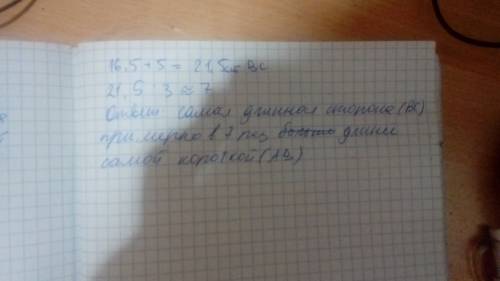 16,5 + 5 = 21,5см BC
21,5 : 3 ≈ 7
Ответ самая длинная сторона (BC)
примерно в 7 раз больше длинее
самой короткой (AB)